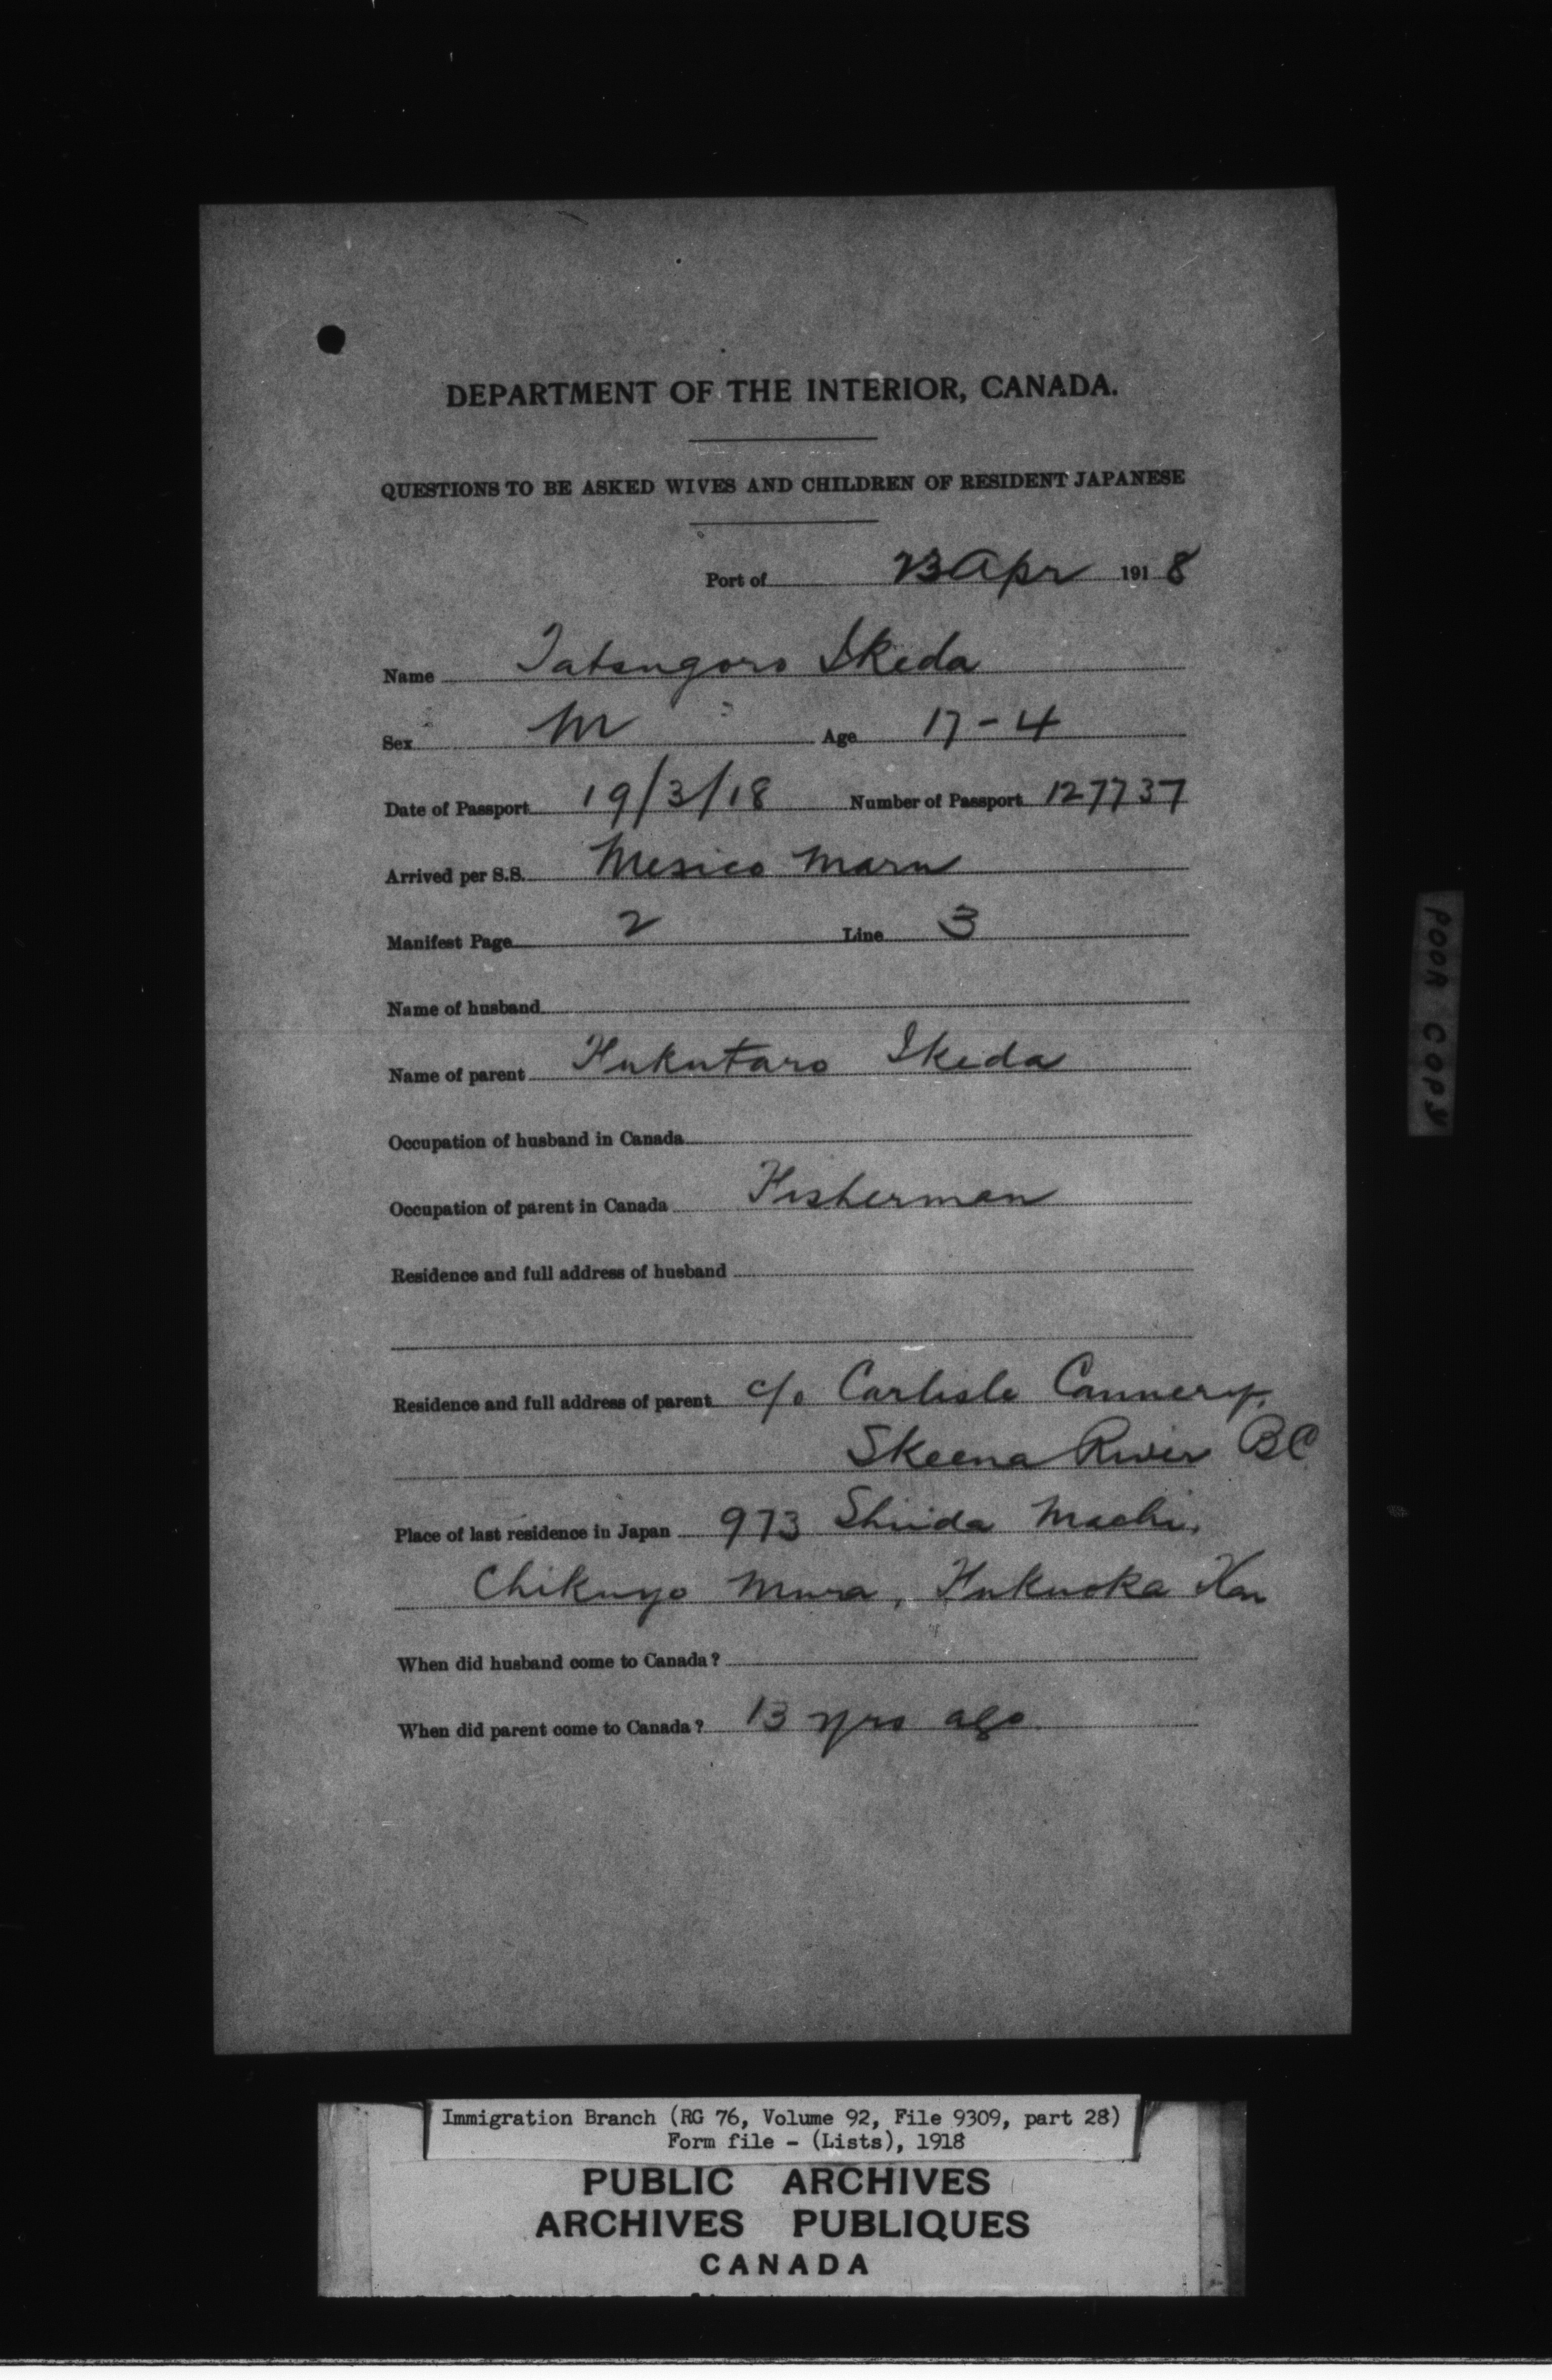 DEPARTMENT OF THE INTERIOR, CANADA.
QUESTIONS TO BE ASKED WIVES AND CHILDREN OF RESIDENT JAPANESE
Port of 23 Apr 1918
Name Tatsugoro Ikeda
Sex M Age 17-4
Date of Passport 19/3/18 Number of Passport 127737
Arrived per S.S. Mexico Maru
Manifest Page 2 Line 3
Name of husband
Name of parent Fukutaro Ikeda
Occupation of husband in Canada
Occupation of parent in Canada Fisherman
Residence and full address of husband
Residence and full address of parent c/o Carlisle Cannery,
Skeena River BC
Place of last residence in Japan 973 Shiida Machi,
Chikuyo Mura, Fukuoka Ken
When did husband come to Canada?
When did parent come to Canada? 13 yrs ago
POOR COPY
Immigration Branch (RG 76, Volume 92, File 9309, part 28)
Form file - (Lists), 1918
PUBLIC ARCHIVES
ARCHIVES PUBLIQUES
CANADA